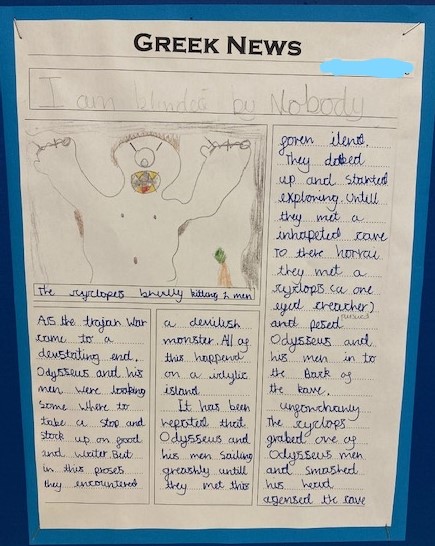 GREEK NEWS
I am blinded by Nobody
The cyclopes bruilly killing 2 men
As the trojan War
came to a
devstating end,
Odysseus and his
men were looking
some where to
take a stop and
stock up on food
and water. But
in this proses
they encountered
a devilish
monster. All of
this happend
on a idylic
island
It has been
reported that
Odysseus and
his men sailing
greashly untill
they met this
foren ilend.
They doked
up and started
exploring. Untill
they met a
inhapeted cave
To there horrau
they met a
cyclops (a one
eyed creacher)
and pesed
Odysseus and
his men in to
the Back of
the kave.
ungorchanly
The cyclops
grabed one of
Odysseus men
and smashed
his head
agensed the cave